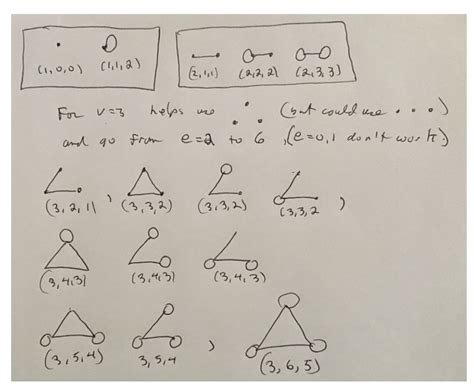 (1,0,0) (1,1,2) (2,1,1) (2,2,2) (2,3,3)
For v=3 helps use (but could use . . .)
and go from e=2 to 6, (e=0,1 don't work.)
(3,2,1) , (3,3,2) (3,3,2) (3,3,2 )
(3,4,3) (3,4,3) (3,4,3)
(3,5,4) 3,5,4 , (3,6,5)